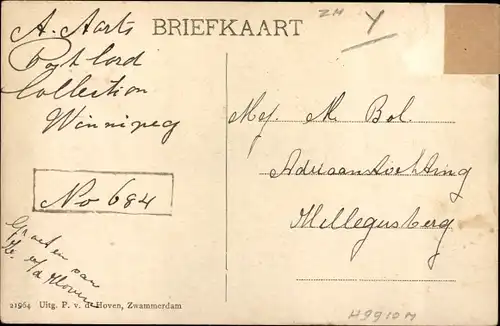 BRIEFKAART
ZH
Y
A. Aarts
Post Cord
Collection
Winnipeg
Mej. M. Bol.
Adriaanstichting
Hillegersberg
No 684
Groeten van
v/d Hoven
21964 Uitg. P. v. d. Hoven, Zwammerdam
H9910M